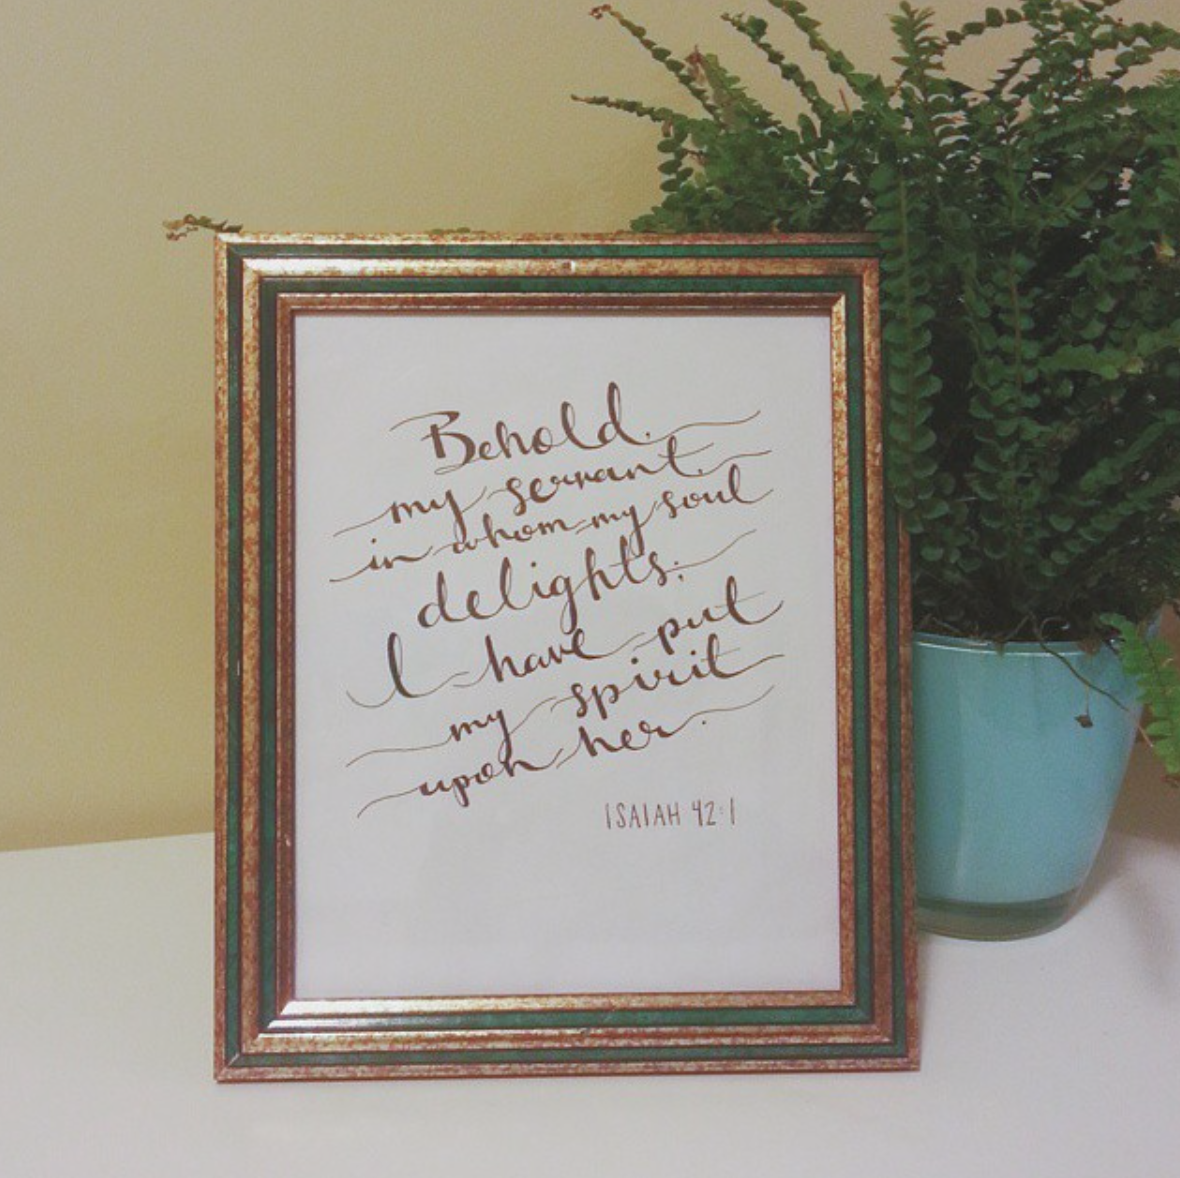 Behold
my servant
in whom my soul
delights;
I have put
my spirit
upon her.
ISAIAH 42:1